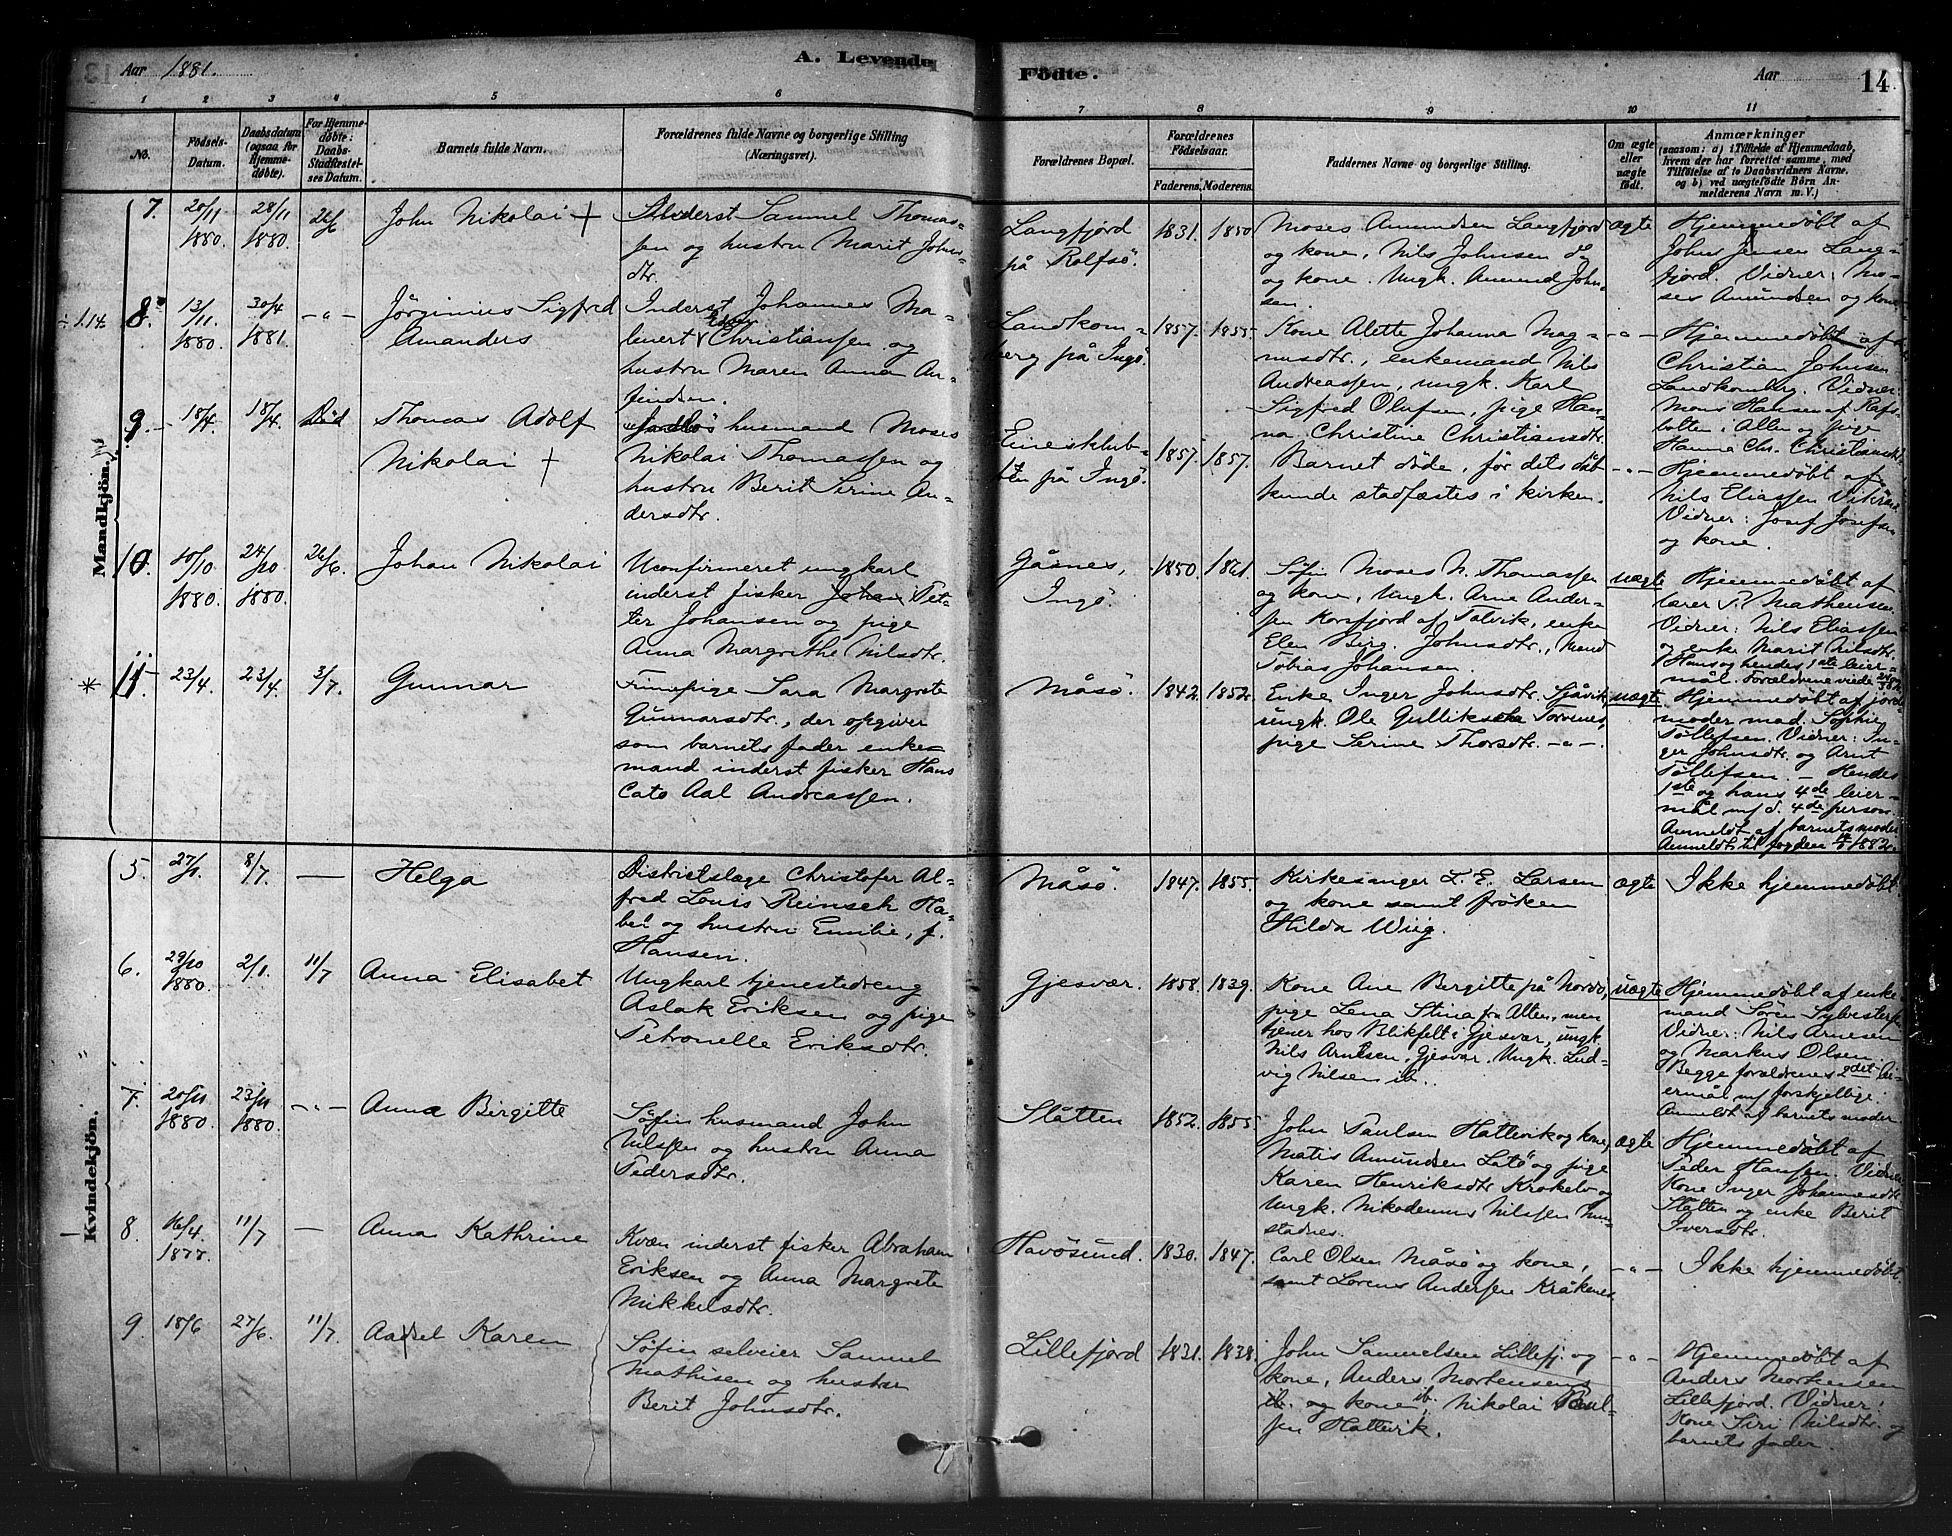 Aar 1881.
A. Levende Födte.
Aar
14
1 2 3 4 5 6 7 8 9 10 11
No.
Födsels-Datum.
Daabsdatum (ogsaa for Hjemme-døbte).
For Hjemme-døbte: Daabs-Stadfæstel-ses Datum.
Barnets fulde Navn.
Forældrenes fulde Navne og borgerlige Stilling (Næringsvei).
Forældrenes Bopæl.
Forældrenes Födselsaar.
Faderens. Moderens.
Faddernes Navne og borgerlige Stilling.
Om ægte eller uægte født.
Anmærkninger
(saasom: a) i Tilfælde af Hjemmedaab, hvem der har forrettet samme, med Tilføielse af to Daabsvidners Navne, og b) ved uægtefødte Börn An-melderens Navn m. V.)
Mandkjön.
7. 20/11 1880. 28/11 1880. 26/6 John Nikolai +
Inderst Samuel Thomas-
sen og hustru Marit Johns-
dtr.
Langfjord
på Rolfsö.
1831. 1850
Moses Amundsen Langfjord
og kone, Nils Johnsen do
og kone. Ungk. Amund John-
sen.
ægte
Hjemmedøbt af
John Jensen Lang-
fjord. Vidner: Mo-
ses Amundsen og kone
8. 13/11 1880 30/4 1881. -"- Jörginius Sigfred
Amanders
Inderst Johannes Ma-
lenert Edvin Christiansen og
hustru Maren Anna An-
findsen.
Landkom-
berg på Ingö.
1857. 1855.
Kone Alette Johanna Mag-
nusdtr., enkemand Nils
Andreassen, ungk. Karl
Sigfred Olufsen, pige Han-
na Christine Christiansdtr.
-"-
Hjemmedøbt af
Christian Johnsen
Landkomberg. Vidner
Mons Hansen af Rafs-
botten i Alten og pige
Hanna Chr. Christiansdtr.
9. 18/4 18/4. Död Thomas Adolf
Nikolai +
husmand Moses
Nikolai Thomassen og
hustru Berit Serine An-
dersdtr.
Einesklub-
ben på Ingö.
1857. 1857.
Barnet døde, før dets dåb
kunde stadfæstes i kirken.
-"-
Hjemmedøbt af
Nils Eliassen
Vidner: Josef Josefsen
og kone.
10. 10/10 1880. 24/10 1880. 26/6. Johan Nikolai
Uconfirmeret ungkarl
inderst fisker Johan Pet-
ter Johansen og pige
Anna Margrethe Nilsdtr.
Gåsnes,
Ingö.
1850. 1861.
Søfin Moses N. Thomassen
og kone, Ungk. Arne Ander-
sen Korsfjord af Talvik, enke
Elen Berg. Johnsdtr., Mand
Tobias Johansen.
uægte
Hjemmedøbt af
lærer P. Mathiesen.
Vidner: Nils Eliassen
og enke Marit Nilsdtr.
Hans og hendes 1ste leier-
mål. Forældrene viede
11. 23/4. 23/4. 3/7. Gunnar
Finnepige Sara Margrete
Gunnarsdtr., der opgiver
som barnets fader enke-
mand inderst fisker Hans
Cato Aal Andreassen.
Måsö.
1842. 1852.
Enke Inger Johnsdtr. Sjåvik,
ungk. Ole Gulliksen Torsnes,
pige Serine Thorsdtr. -"-.
uægte
Hjemmedøbt af jorde-
moder mad. Sophie
Tollefsen. Vidner: In-
ger Johnsdtr. og Arnt
Tollefsen. – Hendes
1ste og hans 4de leier-
mål m/ d. 4de person.
Anmeldt af barnets moder
Anmeldt til fogden 1882.
Kvindekjön.
5. 27/1. 8/7. — Helga
Districtslæge Christofer Al-
fred Louis Reinsch Ha-
bel og hustru Emilie, f.
Hansen.
Måsö.
1847. 1855.
Kirkesanger L. E. Larsen
og kone samt frøken
Hilda Wiig.
ægte
Ikke hjemmedøbt
6. 29/10 1880. 2/1. 11/7 Anna Elisabet
Ungkarl tjenestedreng
Aslak Eriksen og pige
Petronelle Eriksdtr.
Gjesvær.
1858. 1839.
Kone Ane Bergitte på Nordö,
pige Lena Stina fra Alten, men
tjener hos Blikfelt i Gjesvær, ungk
Nils Arntsen, Gjesvær. Ungk. Lud-
vig Nilsen ib.
uægte
Hjemmedøbt af enke-
mand Sören Sylvestersen
Vidner: Nils Arnesen
og Markus Olsen.
Begge forældrenes 2det lei-
ermål m/ forskjellige.
Anmeldt af barnets moder
7. 20/11 1880. 23/11 1880. -"- Anna Birgitte
Søfin husmand John
Nilssen og hustru Anna
Pedersdtr.
Slåtten
1852. 1855.
John Paulsen Hattevik og kone,
Matis Amundsen Latö og pige
Karen Henriksdtr Krokelv og
Ungk. Nikodemus Nilssen
stadnes.
ægte
Hjemmedøbt af
Peder Hansen. Vidner
Kone Inger Johannesdtr
Slåtten og enke Berit
Iversdtr.
8. 16/4. 1877. 11/7 — Anna Kathrine
Kvæn inderst fisker Abraham
Eriksen og Anna Margrete
Mikkelsdtr.
Havösund.
1830. 1847.
Carl Olsen Måsö og kone,
samt Lorens Andersen Kråkenes
-"-
Ikke hjemmedøbt
9. 18/6 27/6. 11/7. Karen
Søfin selveier Samuel
Mathisen og hustru
Berit Johnsdtr.
Lillefjord
1831. 1838.
John Samuelsen Lillefj. og
kone, Anders Mortensens
ib. og kone ib. Nikolai Paul-
sen Hattevik.
-"-
Hjemmedøbt af
Anders Mortensen
Lillefjord. Vidner:
Kone Siri Nilsdtr. og
barnets fader.